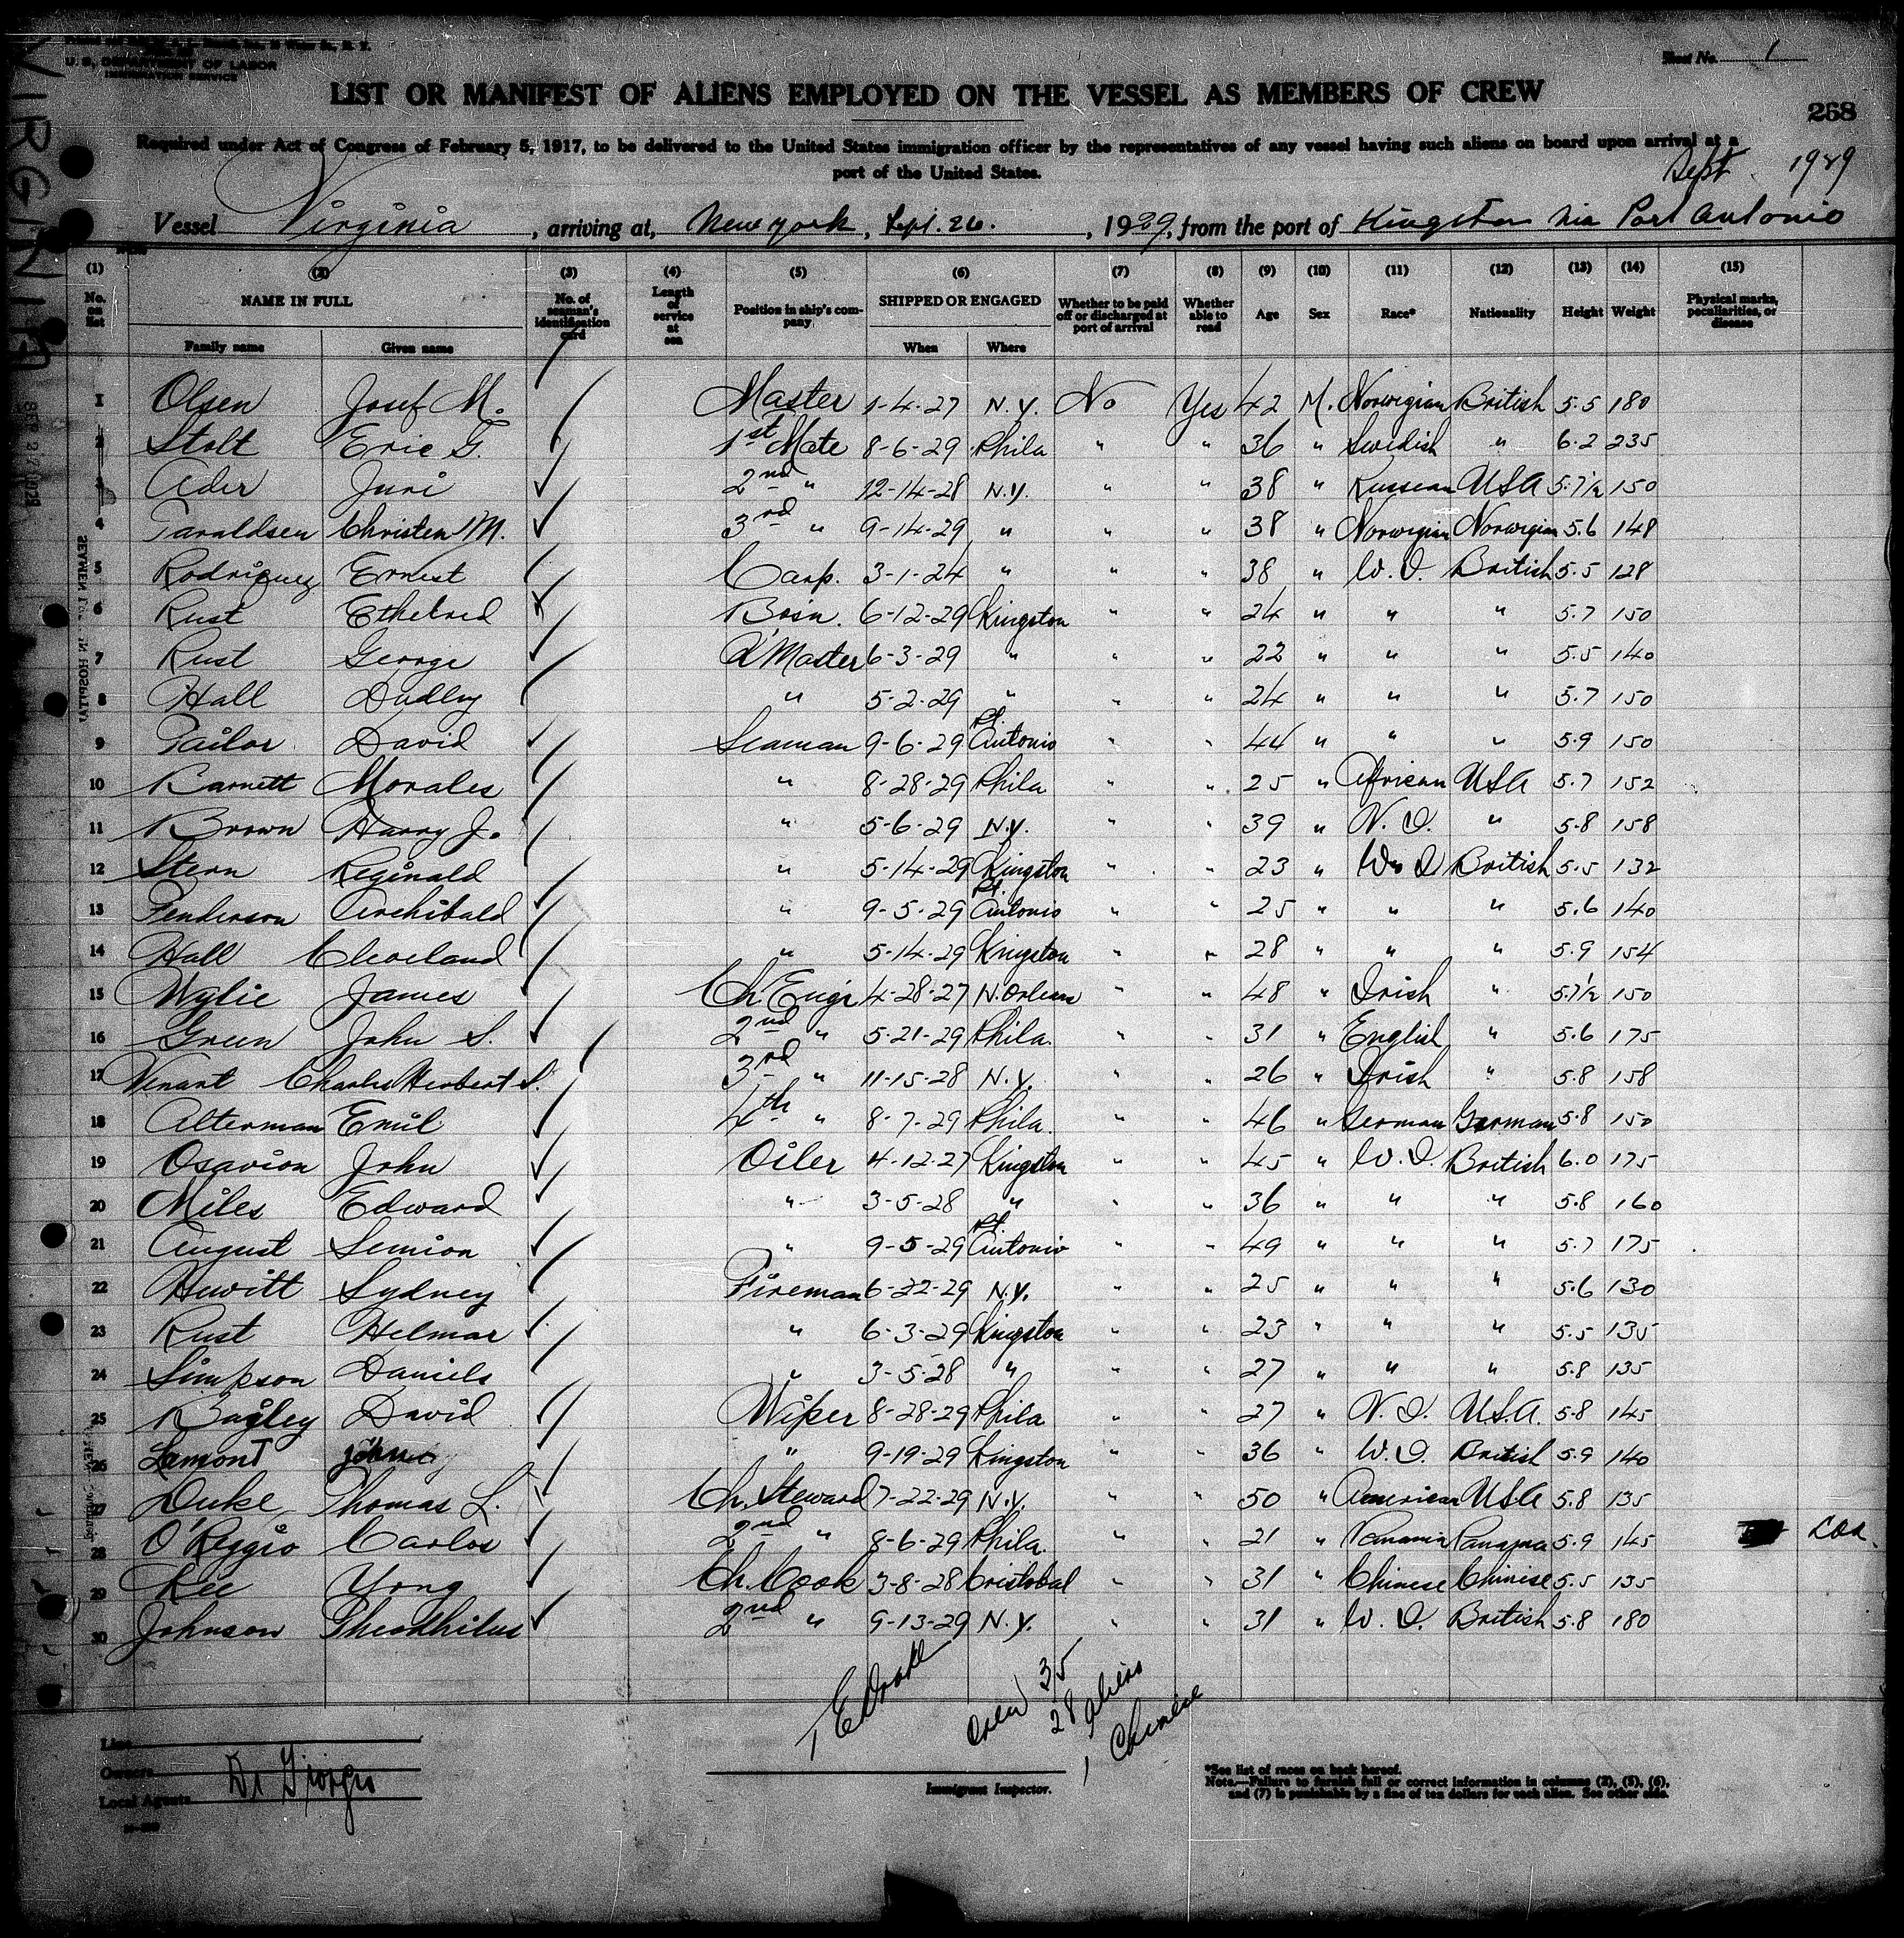 VIRGINIA
U. S. DEPARTMENT OF LABOR
IMMIGRATION SERVICE
Sheet No. 1
LIST OR MANIFEST OF ALIENS EMPLOYED ON THE VESSEL AS MEMBERS OF CREW
268
Required under Act of Congress of February 5, 1917, to be delivered to the United States immigration officer by the representatives of any vessel having such aliens on board upon arrival at a
port of the United States.
Sept 1929
Vessel Virginia, arriving at, New York, Sept. 26., 1929, from the port of Kingston via Port Antonio
(1) (2) (3) (4) (5) (6) (7) (8) (9) (10) (11) (12) (13) (14) (15)
No. on list NAME IN FULL Family name Given name No. of seaman's identification card Length of service at sea Position in ship's company SHIPPED OR ENGAGED When Where Whether to be paid off or discharged at port of arrival Whether able to read Age Sex Race* Nationality Height Weight Physical marks, peculiarities, or disease
1 Olsen Josef M. Master 1-4-27 N.Y. No Yes 42 M. Norwegian British 5.5 180
2 Stolt Eric G. 1st Mate 8-6-29 Phila " " 36 " Swedish " 6.2 235
3 Ader Juri 2nd " 12-14-28 N.Y. " " 38 " Russian USA 5.7½ 150
4 Taraldsen Christen M. 3rd " 9-14-29 " " " 38 " Norwegian Norwegian 5.6 148
5 Rodriquez Ernest Carp. 3-1-24 " " " 38 " W.I. British 5.5 128
6 Rust Ethelred Bosn. 6-12-29 Kingston " " 24 " " " 5.7 150
7 Rust George Q'Master 6-3-29 " " " 22 " " " 5.5 140
8 Hall Dudley " 5-2-29 " " " 24 " " " 5.7 150
9 Tailor David Seaman 9-6-29 Pt. Antonio " " 44 " " " 5.9 150
10 Barnett Morales " 8-28-29 Phila " " 25 " African USA 5.7 152
11 Brown Harry J. " 5-6-29 N.Y. " " 39 " N.I. " 5.8 158
12 Stern Reginald " 5-14-29 Kingston " " 23 " W.I British 5.5 132
13 Penderson Archibald " 9-5-29 Pt. Antonio " " 25 " " " 5.6 140
14 Hall Cleveland " 5-14-29 Kingston " " 28 " " " 5.9 154
15 Wylie James Ch. Engr 4-28-27 N. Orleans " " 48 " Irish " 5.7½ 150
16 Green John S. 2nd " 5-21-29 Phila. " " 31 " English " 5.6 175
17 Venart Charles Herbert S. 3rd " 11-15-28 N.Y. " " 26 " Irish " 5.8 158
18 Alterman Emil 4th " 8-7-29 Phila. " " 46 " German German 5.8 150
19 Osavion John Oiler 4-12-27 Kingston " " 45 " W.I. British 6.0 175
20 Miles Edward " 3-5-28 " " " 36 " " " 5.8 160
21 August Semion " 9-5-29 Pt. Antonio " " 49 " " " 5.7 175
22 Hewitt Sydney Fireman 6-22-29 N.Y. " " 25 " " " 5.6 130
23 Rust Helmar " 6-3-29 Kingston " " 23 " " " 5.5 135
24 Simpson Daniels " 3-5-28 " " " 27 " " " 5.8 135
25 Bagley David Wiper 8-28-29 Phila " " 27 " N.I. U.S.A. 5.8 145
26 Lamont " 9-19-29 Kingston " " 36 " W.I. British 5.9 140
27 Duke Thomas L. Ch. Steward 7-22-29 N.Y. " " 50 " American USA 5.8 135
28 O'Reggio Carlos 2nd " 8-6-29 Phila. " " 21 " Panama 5.9 145
29 Kee Yong Ch. Cook 3-8-28 Cristobal " " 31 " Chinese Chinese 5.5 135
30 Johnson Theophilus 2nd " 9-13-29 N.Y. " " 31 " W.I. British 5.8 180
Crew 35
28 aliens
1 Chinese
Line
Owners Di Giorgio
Local Agents
Immigrant Inspector.
*See list of races on back hereof.
Note.—Failure to furnish full or correct information in columns (2), (5), (6),
and (7) is punishable by a fine of ten dollars for each alien. See other side.